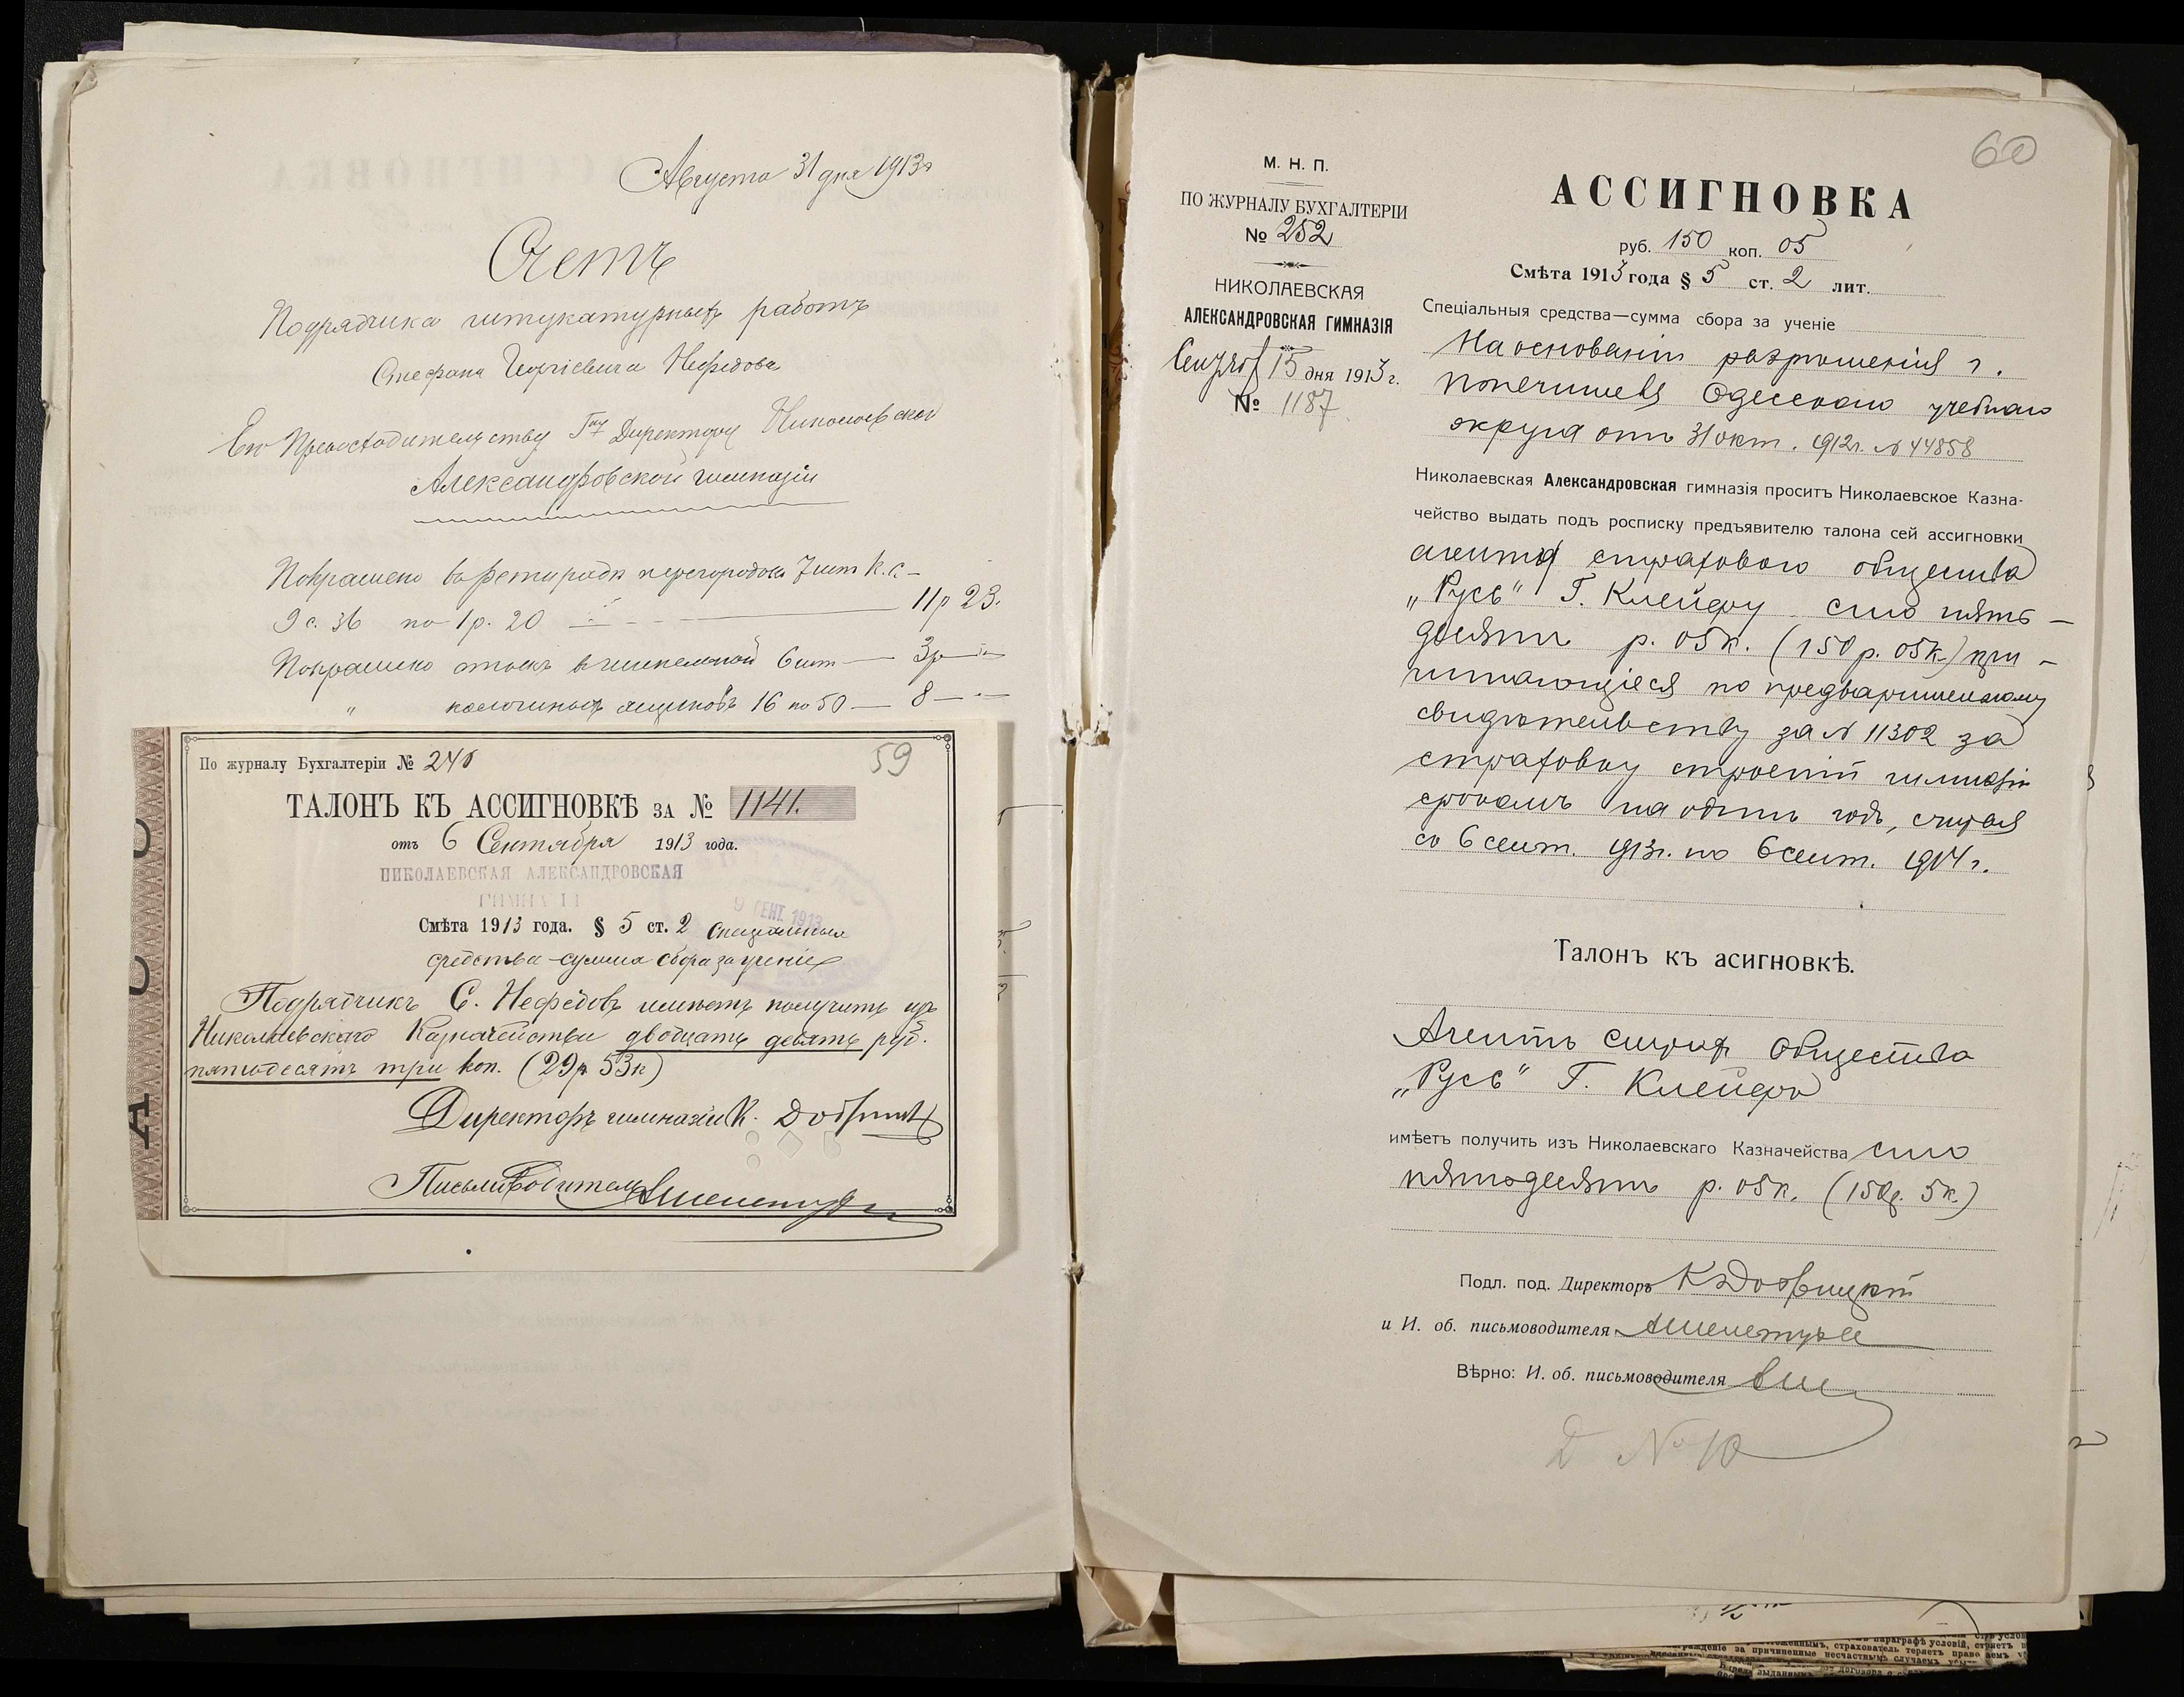 Августа 31 дня 1913 г
Счетъ
Подрядчика штукатурныхъ работъ
Стефана Георгіевича Нефедова
Его Превосходительству Гну Директору Николаевской
Александровской гимназіи
Покрашено перегородокъ 7 шт к.с.
9 с. 36 по 1 р. 20 — 11 р 23.
Покрашено въ шинельной 6 шт — 3 р —
" ящиковъ 16 по 50 — 8 —
По журналу Бухгалтеріи № 246
59
ТАЛОНЪ КЪ АССИГНОВКѢ ЗА № 1141.
отъ 6 Сентября 1913 года.
НИКОЛАЕВСКАЯ АЛЕКСАНДРОВСКАЯ
9 СЕНТ. 1913
Смѣта 1913 года. § 5 ст. 2 Спеціальныя
средства - сумма сбора за ученіе
Подрядчикъ С. Нефедовъ имѣетъ получить изъ
Николаевскаго Казначейства двадцать девять руб.
пятьдесятъ три коп. (29 р 53 к)
Директоръ гимназіи К.
Письмоводитель
60
М. Н. П.
ПО ЖУРНАЛУ БУХГАЛТЕРІИ
№ 252
НИКОЛАЕВСКАЯ
АЛЕКСАНДРОВСКАЯ ГИМНАЗІЯ
15 дня 1913 г.
№ 1187
АССИГНОВКА
руб. 150 коп. 05
Смѣта 1913 года § 5 ст. 2 лит.
Спеціальныя средства—сумма сбора за ученіе
На основаніи разрѣшенія г.
Попечителя Одесскаго учебнаго
округа отъ 31 окт. 1912 г. № 44858
Николаевская Александровская гимназія проситъ Николаевское Казна-
чейство выдать подъ росписку предъявителю талона сей ассигновки
агенту страхового общества
„Русь" Г. Клейфу сто пять-
десятъ р. 05 к. (150 р. 05 к.) при-
читающіеся по предварительному
свидѣтельству за № 11302 за
страховку строеній гимназіи
срокомъ на одинъ годъ, считая
со 6 сент. 1913 г. по 6 сент. 1914 г.
Талонъ къ асигновкѣ.
Агентъ страх. Общества
„Русь" Г. Клейфъ
имѣетъ получить изъ Николаевскаго Казначейства сто
пятьдесятъ р. 05 к. (150 р. 5 к.)
Подл. под. Директоръ К
и И. об. письмоводителя
Вѣрно: И. об. письмоводителя
Д № 10